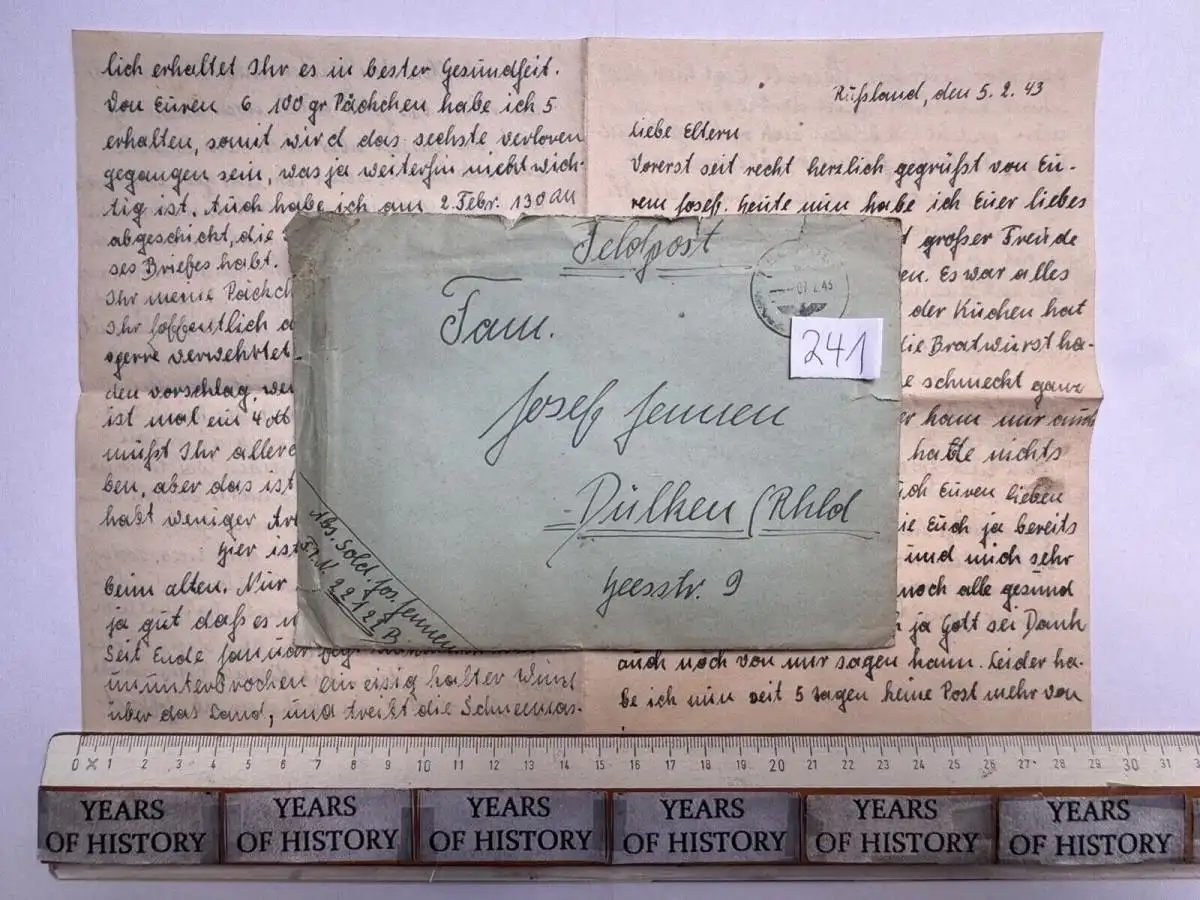 lich erhaltet Ihr es in bester Gesundheit.
Von Euren 6 100 gr Päckchen habe ich 5
erhalten, somit wird das sechste verloren
gegangen sein, was ja weiterhin nicht wich-
tig ist. Auch habe ich am 2 Febr. 130 RM
abgeschickt, die
ses Briefes habt.
Ihr meine Päckch
Ihr hoffentlich
verwehrtet
den vorschlag, we
ist mal ein
müßt Ihr aller
ben, aber das ist
habt weniger
Hier ist
beim alten. Nur
ja gut daß es
Seit Ende Januar
ununterbrochen ein eisig kalter Wind
über das Land, und treibt die Schneemas-
Rußland, den 5. 2. 43
Liebe Eltern
Vorerst seit recht herzlich gegrüßt von Eu-
rem Josef. Heute nun habe ich Euer liebes
großer Freude
en. Es war alles
der Kuchen hat
die Bratwurst ha-
schmeckt ganz
kam mir auch
hatte nichts
ich Euren lieben
ie Euch ja bereits
und mich sehr
noch alle gesund
ja Gott sei Dank
auch noch von mir sagen kann. Leider ha-
be ich nun seit 5 Tagen keine Post mehr von
Feldpost
07.2.43
241
Fam.
Josef Jennen
Dülken (Rhld
Heesstr. 9
Abs. Sold. Jos. Jennen
F.P.N. 22122 B
0 1 2 3 4 5 6 7 8 9 10 11 12 13 14 15 16 17 18 19 20 21 22 23 24 25 26 27 28 29 30 31
YEARS OF HISTORY YEARS OF HISTORY YEARS OF HISTORY YEARS OF HISTORY YEARS OF HISTORY YEARS OF HISTORY